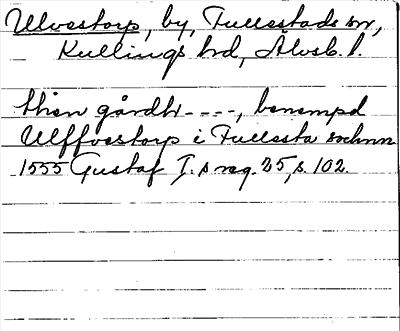 Ulvstorp, by, Fullestads sn,
Kullings hd, Älvsb. l.
thren gårdh - - - -, benempd
Ulffvestorp i Fullesta sochnn
1555 Gustaf I:s reg. 25, s. 102.